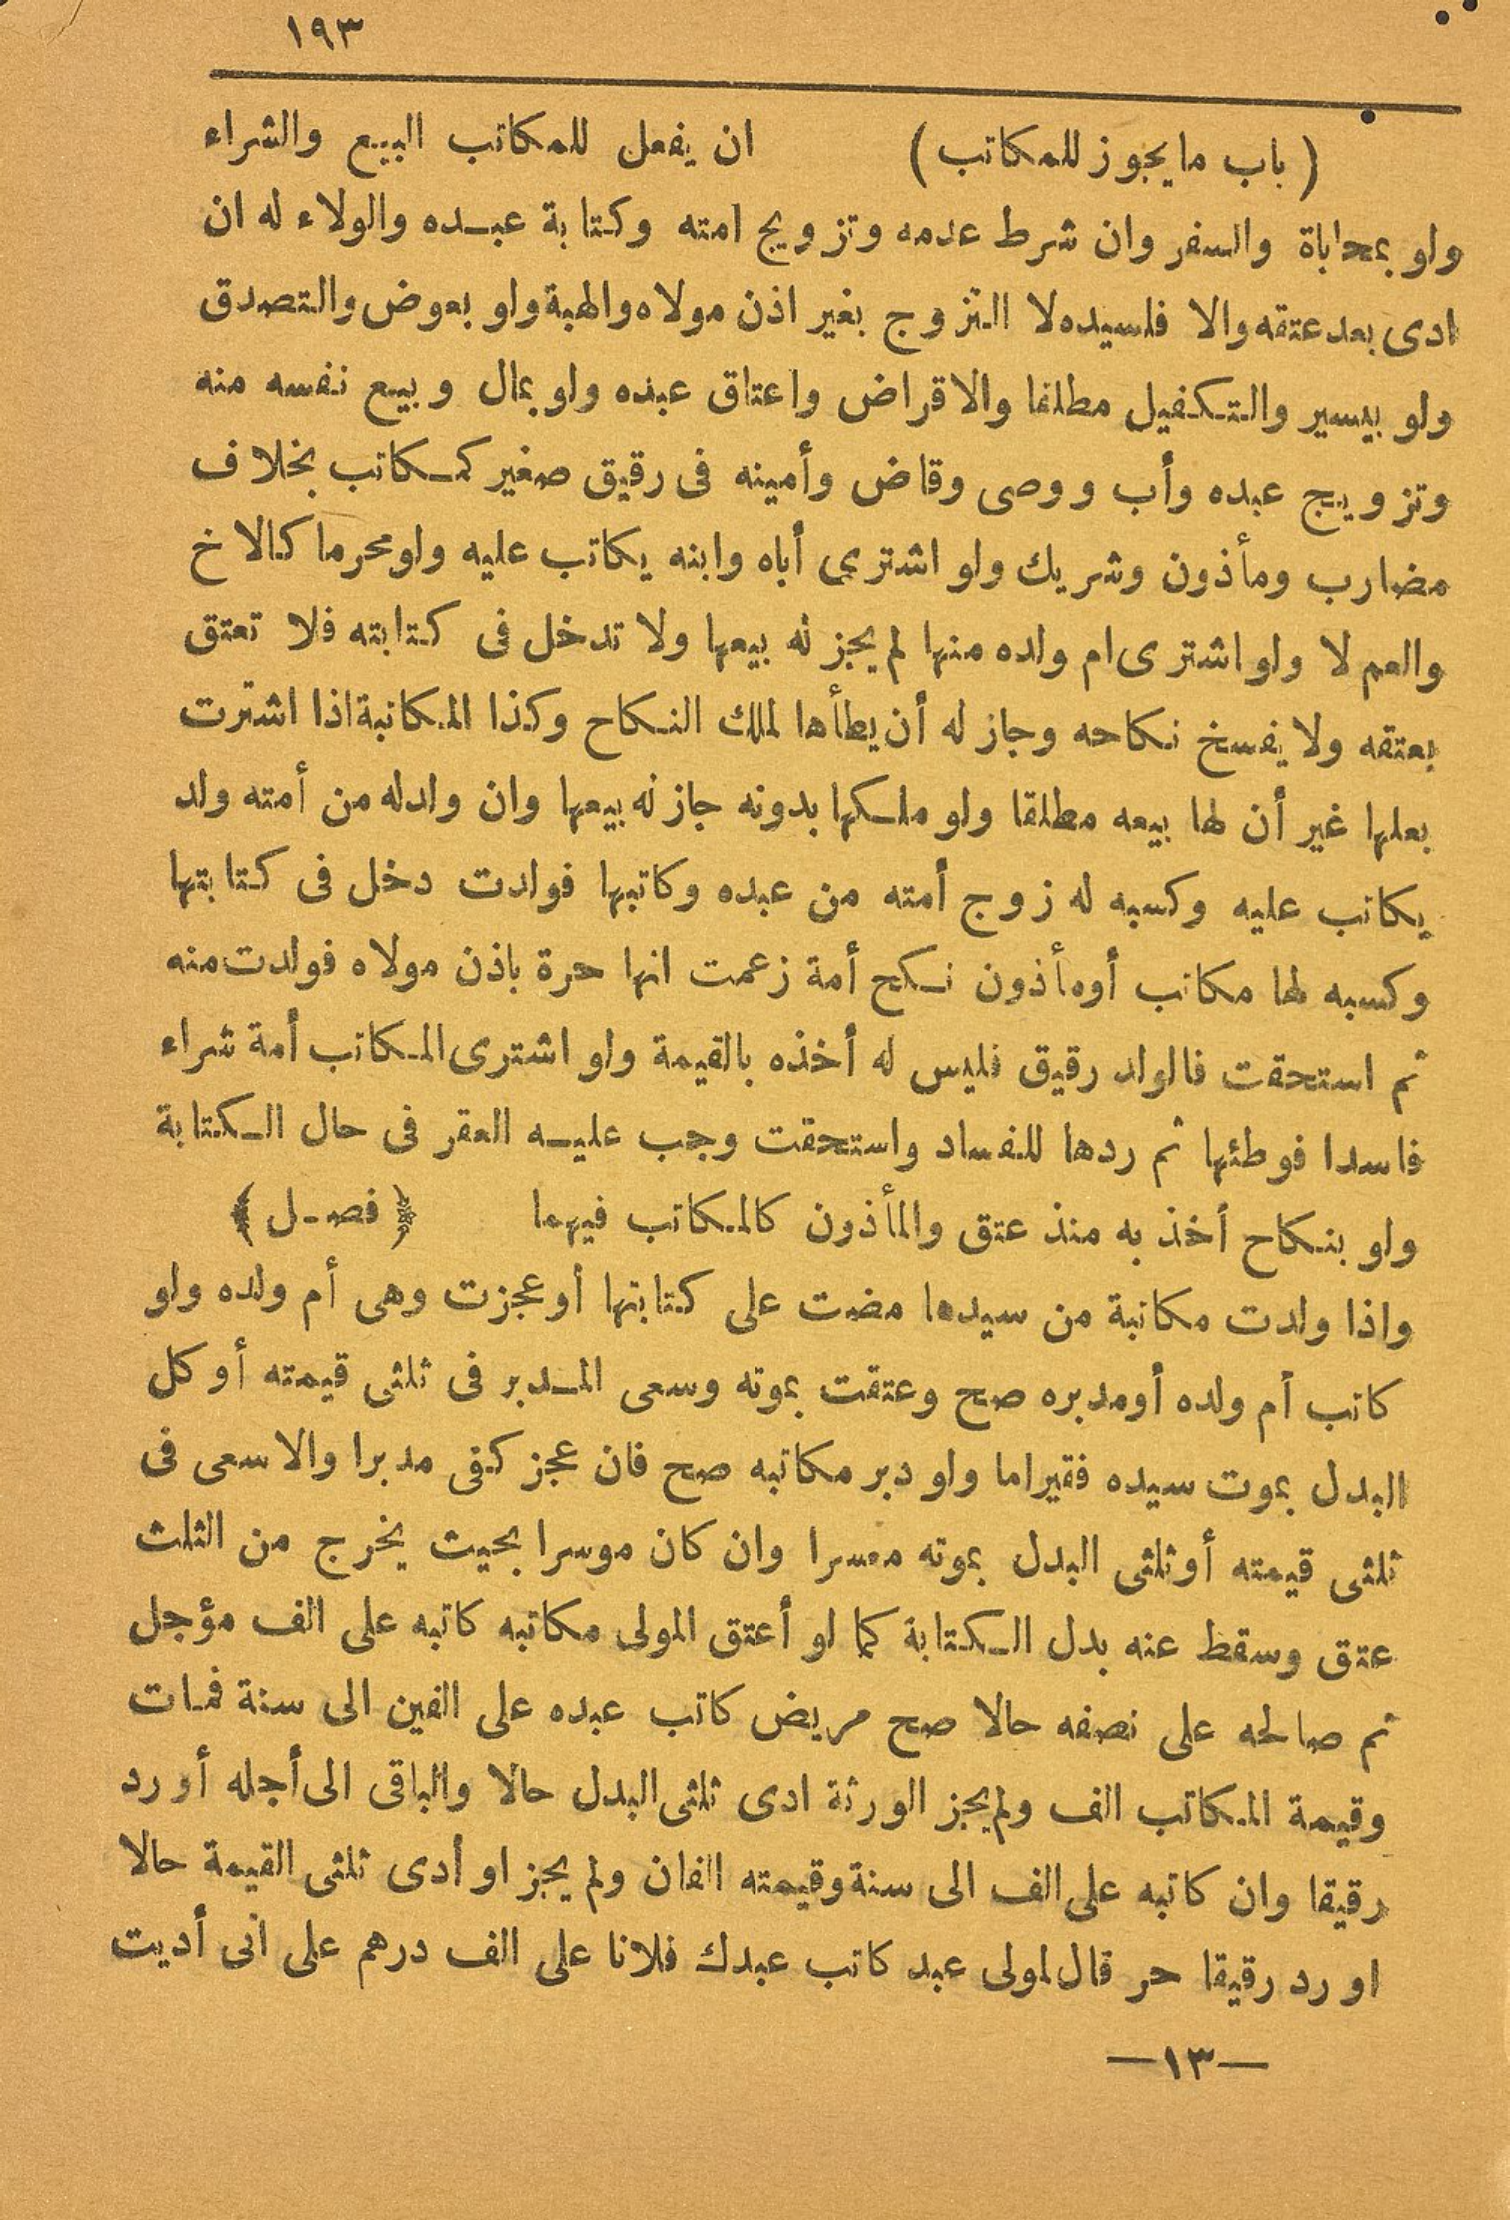 ١٩٣
( باب ما يجوز للمكاتب ) ان يفعل للمكاتب البيع والشراء
ولو بمحاباة والسفر وان شرط عدمه وتزويج امته وكتابة عبده والولاء له ان
ادى بعد عتقه والا فلسيده لا التزوج بغير اذن مولاه والهبة ولو بعوض والتصدق
ولو بيسير والتكفيل مطلقا والاقراض واعتاق عبده ولو بمال وبيع نفسه منه
وتزويج عبده وأب ووصى وقاض وأمينه فى رقيق صغير كمكاتب بخلاف
مضارب ومأذون وشريك ولو اشترى أباه وابنه يكاتب عليه ولو محرما كالاخ
والعم لا ولو اشترى ام ولده منها لم يجز له بيعها ولا تدخل فى كتابته فلا تعتق
بعتقه ولا يفسخ نكاحه وجاز له أن يطأها لملك النكاح وكذا المكاتبة اذا اشترت
بعلها غير أن لها بيعه مطلقا ولو ملكها بدونه جاز له بيعها وان ولد له من أمته ولد
يكاتب عليه وكسبه له زوج أمته من عبده وكاتبها فولدت دخل فى كتابتها
وكسبه لها مكاتب أو مأذون نكح أمة زعمت انها حرة باذن مولاه فولدت منه
ثم استحقت فالولد رقيق فليس له أخذه بالقيمة ولو اشترى المكاتب أمة شراء
فاسدا فوطئها ثم ردها للفساد واستحقت وجب عليه العقر فى حال الكتابة
ولو بنكاح أخذ به منذ عتق والمأذون كالمكاتب فيهما ﴿ فصل ﴾
واذا ولدت مكاتبة من سيدها مضت على كتابتها أو عجزت وهى أم ولده ولو
كاتب أم ولده أو مدبره صح وعتقت بموته وسعى المدبر فى ثلثى قيمته أو كل
البدل بموت سيده فقيرا ما ولو دبر مكاتبه صح فان عجز كفى مدبرا والا سعى فى
ثلثى قيمته أو ثلثى البدل بموته معسرا وان كان موسرا بحيث يخرج من الثلث
عتق وسقط عنه بدل الكتابة كما لو أعتق المولى مكاتبه كاتبه على الف مؤجل
ثم صالحه على نصفه حالا صح مريض كاتب عبده على الفين الى سنة فمات
وقيمة المكاتب الف ولم يجز الورثة ادى ثلثى البدل حالا والباقى الى أجله أو رد
رقيقا وان كاتبه على الف الى سنة وقيمته الفان ولم يجز او أدى ثلثى القيمة حالا
او رد رقيقا حر قال لمولى عبد كاتب عبدك فلانا على الف درهم على انى أديت
—١٣—